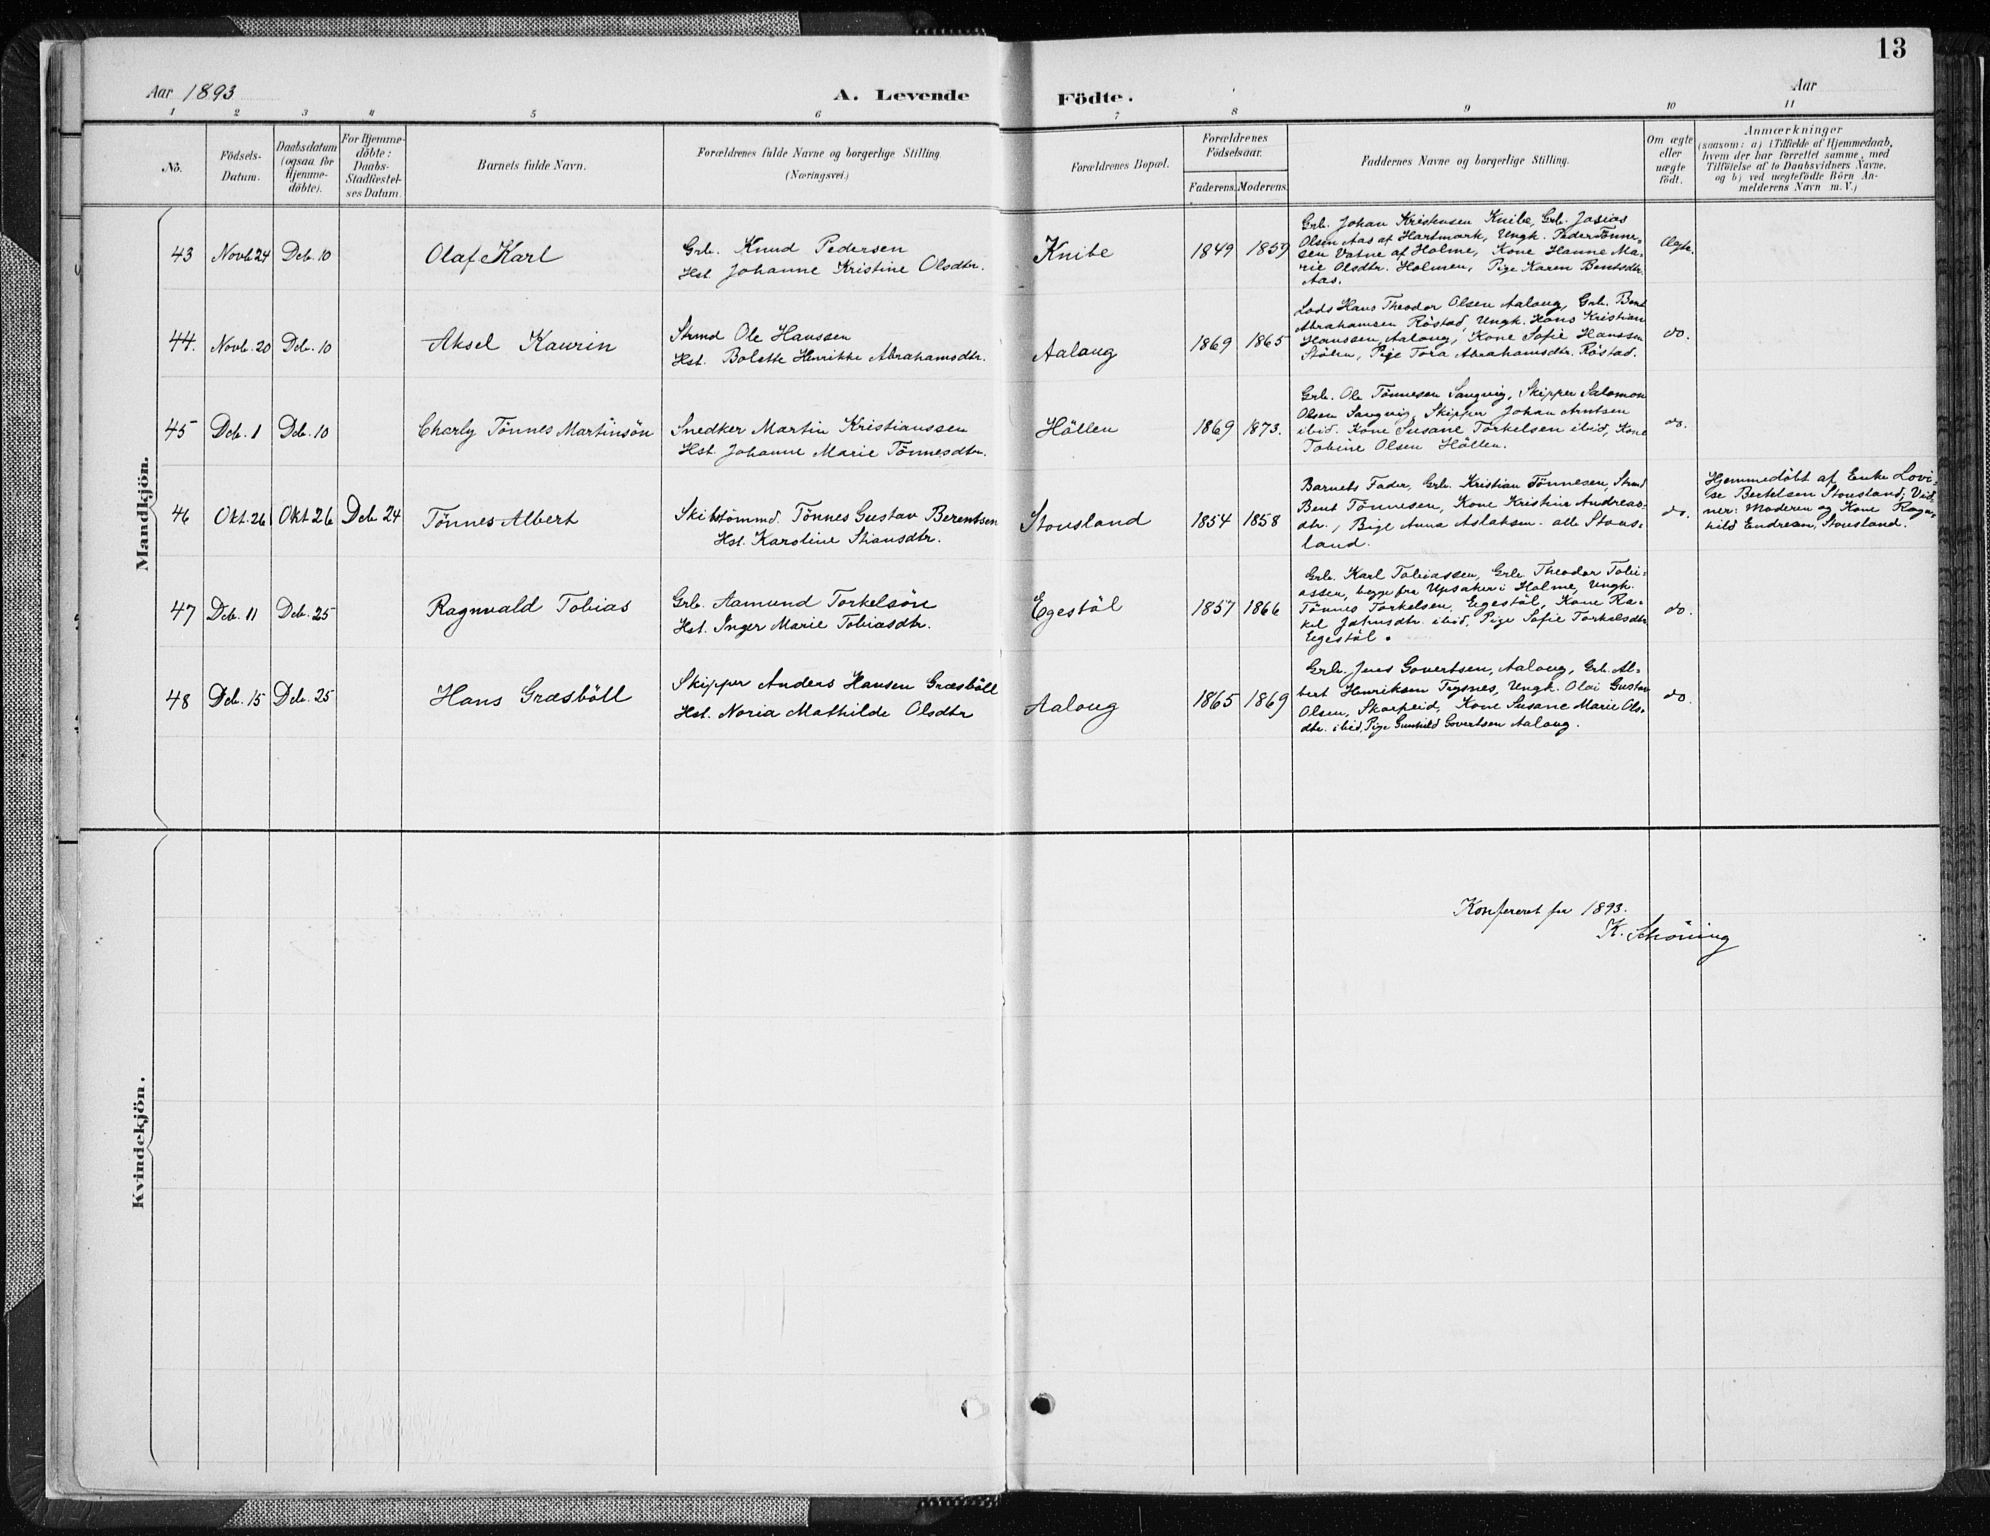 13
Aar 1893
A. Levende Födte.
Aar
1 2 3 4 5 6 7 8 9 10 11
No.
Födsels-
Datum.
Daabsdatum
(ogsaa for
Hjemme-
döbte).
For Hjemme-
döbte:
Daabs-
Stadfæstel-
ses Datum.
Barnets fulde Navn.
Forældrenes fulde Navne og borgerlige Stilling.
(Næringsvei.)
Forældrenes Bopæl.
Forældrenes
Födselsaar.
Faderens. Moderens.
Faddernes Navne og borgerlige Stilling.
Om ægte
eller
uægte
födt.
Anmærkninger
(saasom: a) i Tilfælde af Hjemmedaab,
hvem der har forrettet samme, med
Tilföielse af to Daabsvidners Navne,
og b) ved uægtefödte Börn An-
melderens Navn m. V.)
Mandkjön.
43 Novb. 24 Deb. 10 Olaf Karl
Grb. Knud Pedersen
Hst. Johanne Kristine Olsdtr.
Knibe 1849 1859
Grb. Johan Kristensen Knibe, Grb. Josias
Olsen Aas af Hartmark, Ungk. Peder Tønne-
sen Vatne af Holme, Kone Hanne Ma-
rie Olsdtr. Holmen, Pige Karen Bentsdtr.
Aas.
Ægte.
44. Novb. 20 Deb. 10 Aksel Kaurin
Strmd Ole Hanssen
Hst. Bolette Henrikke Abrahamsdtr.
Aaloug 1869 1865
Lods Hans Theodor Olsen Aaloug, Grb. Bent
Abrahamsen Röstad, Ungk. Hans Kristian
Hanssen Aaloug, Kone Sofie Hanssen
Stölen, Pige Tora Abrahamsdtr. Röstad.
do.
45 Deb. 1 Deb. 10 Charly Tönnes Martinsön
Snedker Martin Kristianssen
Hst. Johanne Marie Tönnesdtr.
Höllen 1869 1873.
Grb. Ole Tönnesen Langvig, Skipper Salomon
Olsen Langvig, Skipper Johan Arntsen
ibid. Kone Susane Torkelsen ibid, Kone
Tobine Olsen Höllen.
do.
46 Okt. 26 Okt 26 Deb 24 Tönnes Albert
Skibstömmd. Tönnes Gustav Berentsen
Hst. Karoline Stiansdtr.
Stousland 1854 1858
Barnets Fader, Grb. Kristian Tönnesen, Strmd
Bent Tönnesen, Kone Kristine Andreas-
dtr., Pige Anna Aslaksen. alle Stous-
land.
do.
Hjemmedöbt af Enke Lovi-
se Bertelsen Stousland, Vid-
ner: Moderen og Kone Ragn-
hild Endresen, Stousland.
47 Deb. 11 Deb. 25 Ragnvald Tobias
Grb. Aamund Torkelsön
Hst. Inger Marie Tobiasdtr.
Egestöl 1857 1866
Grb. Karl Tobiassen, Grb. Theodor Tobi-
assen, begge fra Upsaker i Holme, Ungk.
Tönnes Torkelsen, Egestöl, Kone Ra-
kel Jahnsdtr. ibid, Pige Sofie Torkelsdtr
Egestöl.
do.
48 Deb. 15 Deb. 25 Hans Græsböll
Skipper Anders Hansen Græsböll
Hst. Noria Mathilde Olsdtr
Aaloug 1865 1869
Grb. Jens Govertsen, Aaloug, Grb. Al-
bert Henriksen Trysnes, Ungk. Olai Gustav
Olsen, Skarpeid, Kone Susane Marie Ols-
dtr. ibid, Pige Gunhild Govertsen Aaloug.
do.
Kvindekjön.
Konfereret for 1893.
K. Schöning